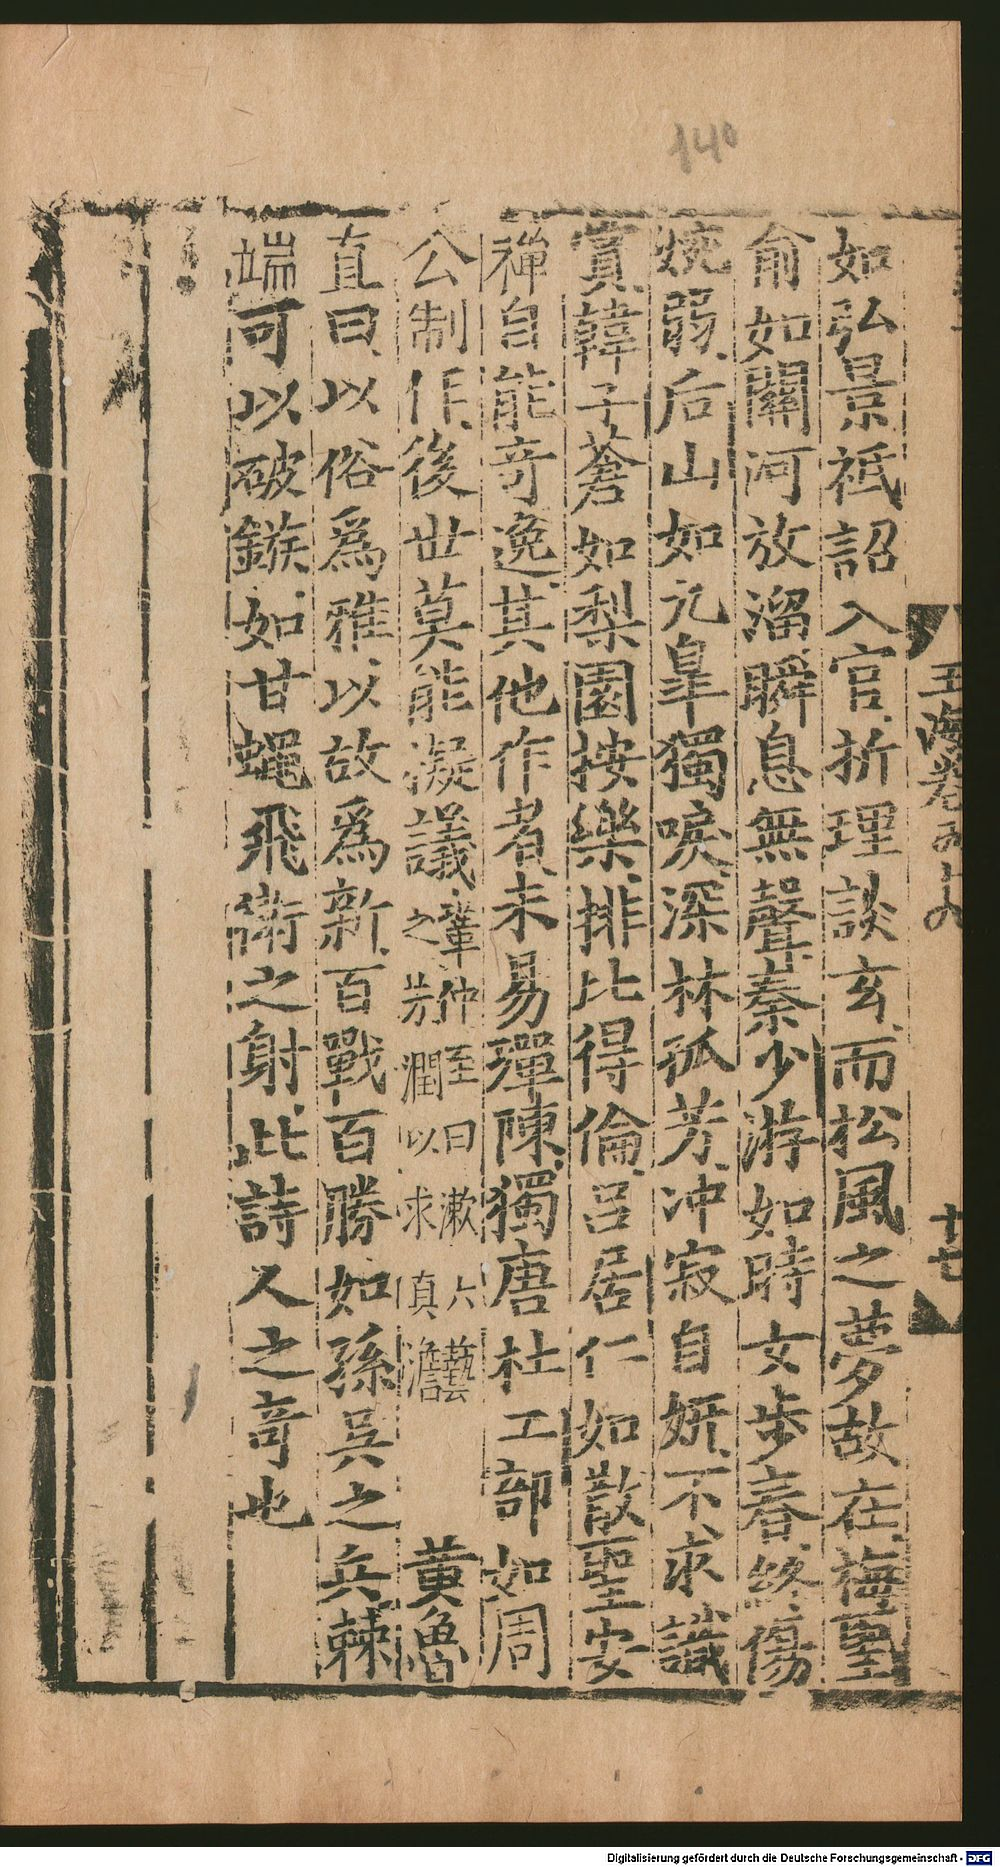 140
玉海卷五十九
十七
如弘景祗詔入官折理談玄而松風之夢故在梅聖
俞如關河放溜瞬息無聲秦少游如時女步春終傷
婉弱后山如九皐獨唳深林孤芳冲寂自妍不求識
賞韓子蒼如梨園按樂排比得倫呂居仁如散聖安
禪自能奇逸其他作者未易殫陳獨唐杜工部如周
公制作後世莫能擬議鞏仲至曰漱六藝之芳潤以求真澹黃魯
直曰以俗爲雅以故爲新百戰百勝如孫吳之兵棘
端可以破鏃如甘蠅飛衛之射此詩人之奇也
Digitalisierung gefördert durch die Deutsche Forschungsgemeinschaft - DFG